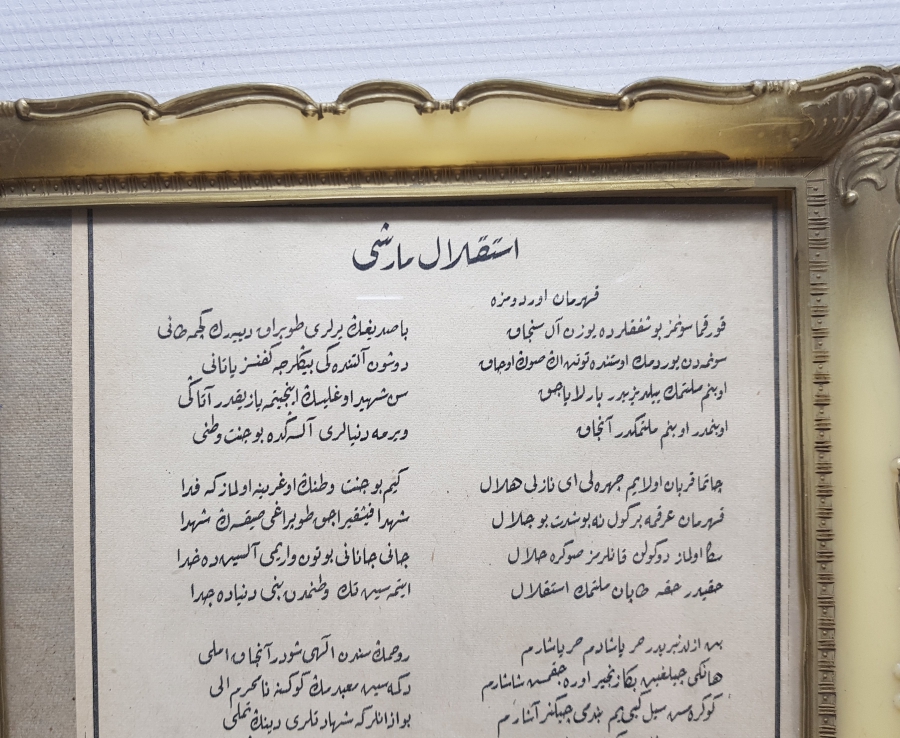 استقلال مارشى
قهرمان اوردومزه
قورقما سونمز بو شفقلرده يوزن آل سنجاق
سونمه‌دن يوردمك اوستنده توتن اڭ صوڭ اوجاق
او بنم ملتمك ييلديزيدر پارلاياجق
او بنمدر او بنم ملتمكدر آنجاق
چاتما قربان اولايم چهره‌ڭى اى نازلى هلال
قهرمان عرقمه بر گول نه بو شدت بو جلال
سڭا اولماز دوكولن قانلرمز صوڭره حلال
حقيدر حقه طاپان ملتمك استقلال
بن ازلدنبريدر حر ياشادم حر ياشارم
هانكى چيلغين بڭا زنجير اوره‌جقمش شاشارم
كوكره‌مش سيل كبى‌يم بندمى چيكنر آشارم
باصديغڭ يرلرى طوپراق دييه‌رك گچمه طانى
دوشون آلتنده‌كى بيڭلرجه كفنسز ياتانى
سن شهيد اوغليسڭ اينجيتمه يازيقدر آتاڭى
ويرمه دنيالرى آلسه‌ڭده بو جنت وطنى
كيم بو جنت وطنڭ اوغرينه اولماز كه فدا
شهدا فيشقيراجق طوپراغى صيقسه‌ڭ شهدا
جانى جانانى بوتون واريمى آلسين ده خدا
ايتمه‌سين تك وطنمدن بنى دنياده جدا
روحمڭ سندن الهى شودر آنجاق املى
دكمه‌سين معبدمڭ گوكسنه نامحرم الى
بو اذانلر كه شهادتلرى دينڭ تملى